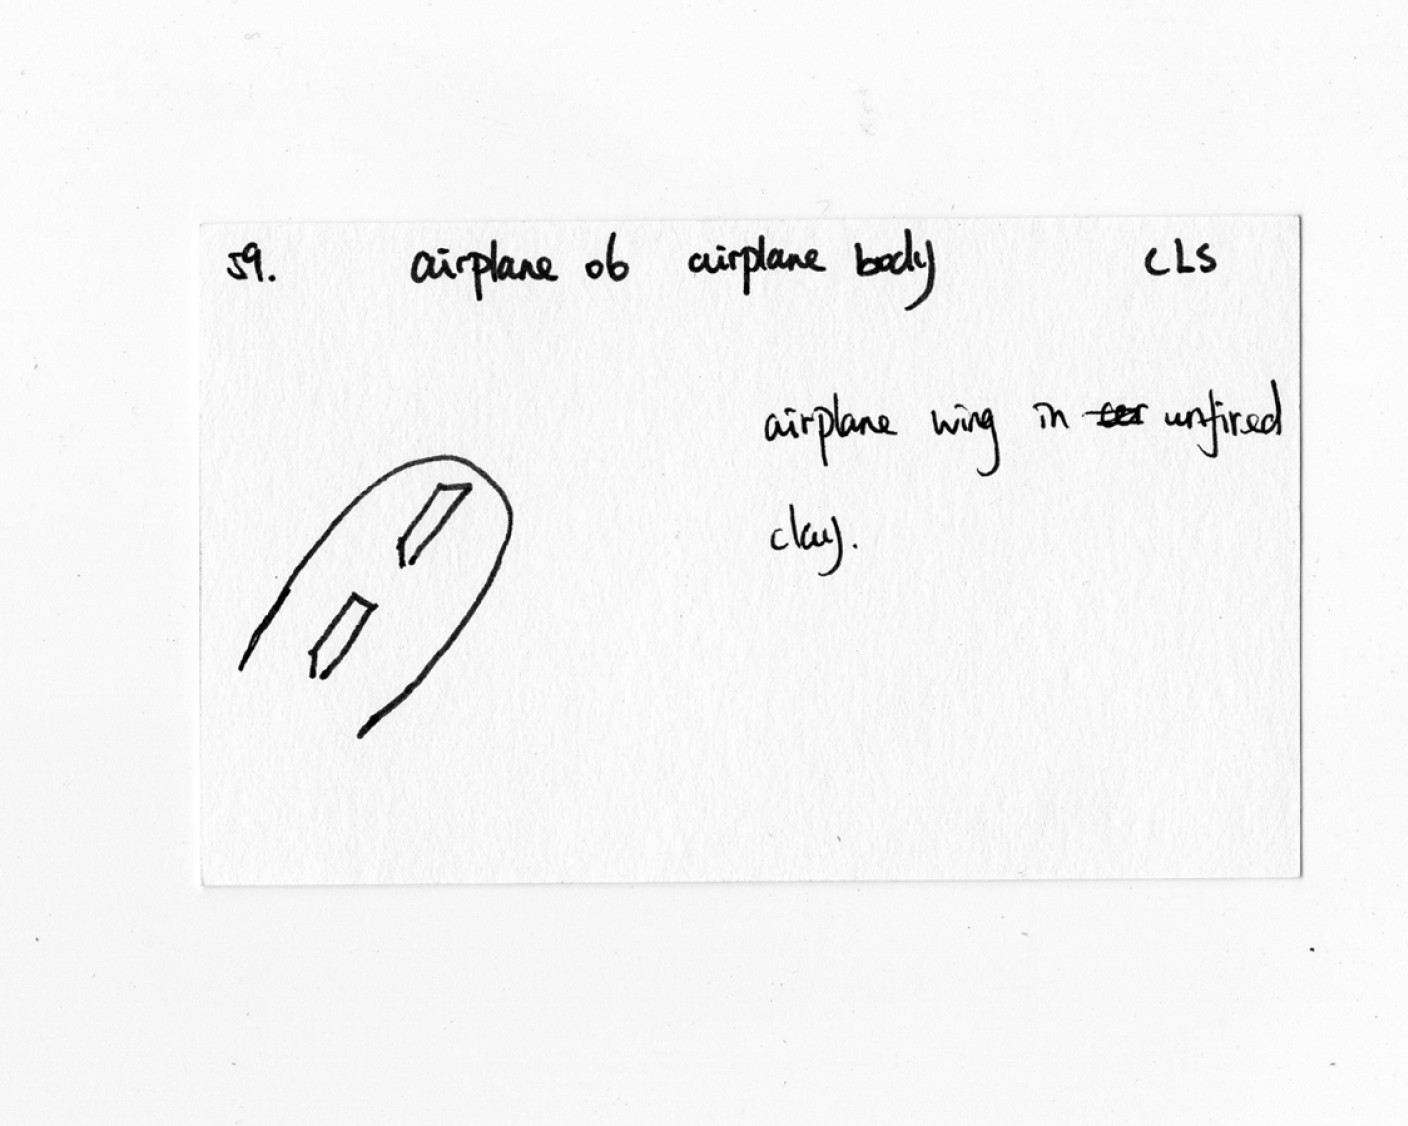 59. airplane ob airplane body CLS
airplane wing in unfired
clay.